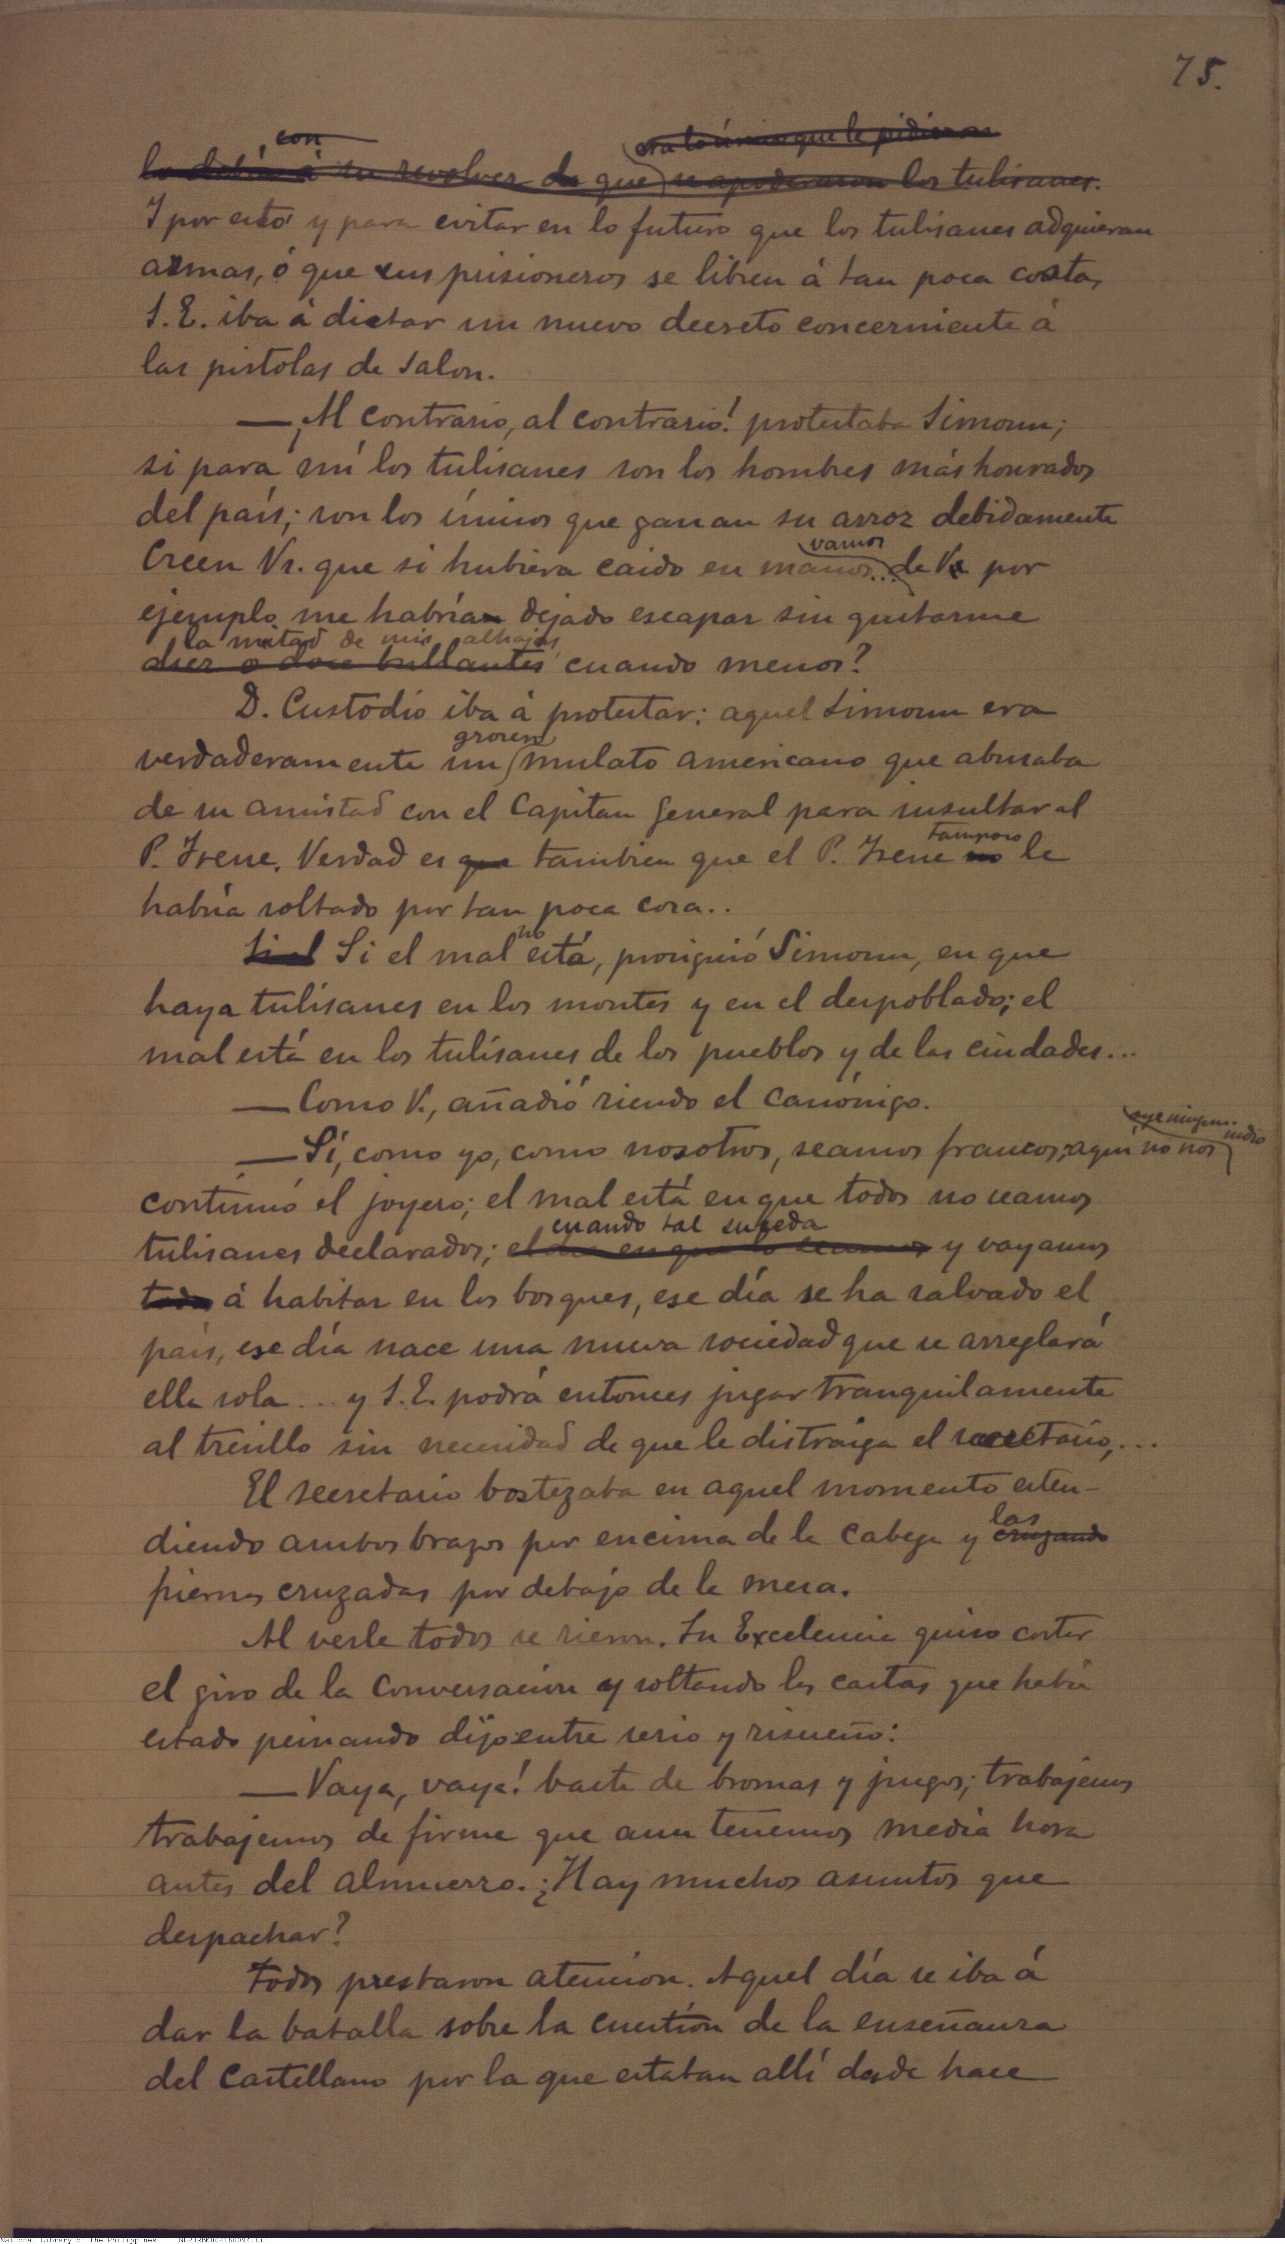 75.
con
era lo único que le pidieron
lo debía á su revolver de que se apoderaron los tulisanes.
Y por esto y para evitar en lo futuro que los tulisanes adquieran
armas, ó que sus prisioneros se libren á tan poca costa,
S. E. iba á dictar un nuevo decreto concerniente á
las pistolas de salon.
—¡Al contrario, al contrario! protestaba Simoun;
si para mí los tulisanes son los hombres más honrados
del país; son los únicos que ganan su arroz debidamente
vamos
Creen Vs. que si hubiera caido en manos... de Vs. por
ejemplo, me habrían dejado escapar sin quitarme
la mitad de mis alhajas,
diez o doce brillantes cuando menos?
D. Custodio iba á protestar: aquel Simoun era
grosero
verdaderamente un mulato americano que abusaba
de su amistad con el Capitan General para insultar al
tampoco
P. Irene. Verdad es que tambien que el P. Irene no le
habría soltado por tan poca cosa..
no
Si el Si el mal está, prosiguió Simoun, en que
haya tulisanes en los montes y en el despoblado; el
mal está en los tulisanes de los pueblos y de las ciudades...
—Como V., añadió riendo el canónigo.
oye ningun
indio
—Sí, como yo, como nosotros, seamos francos; aquí no nos
continuó el joyero; el mal está en que todos no seamos
cuando tal suceda
tulisanes declarados; el dia en que lo seamos y vayamos
todos á habitar en los bosques, ese día se ha salvado el
país, ese día nace una nueva sociedad que se arreglará
ella sola... y S. E. podrá entonces jugar tranquilamente
al tresillo sin necesidad de que le distraiga el secretario,...
El secretario bostezaba en aquel momento esten-
las
diendo ambos brazos por encima de la cabeza y cruzando
piernas cruzadas por debajo de la mesa.
Al verle todos se rieron. Su Excelencia quiso cortar
el giro de la conversación y soltando las cartas que había
estado peinando dijo entre serio y risueño:
—Vaya, vaya! basta de bromas y juegos; trabajemos
trabajemos de firme que aun tenemos media hora
antes del almuerzo. ¿Hay muchos asuntos que
despachar?
Todos prestaron atencion. Aquel día se iba á
dar la batalla sobre la cuestión de la enseñanza
del Castellano por la que estaban allí desde hace